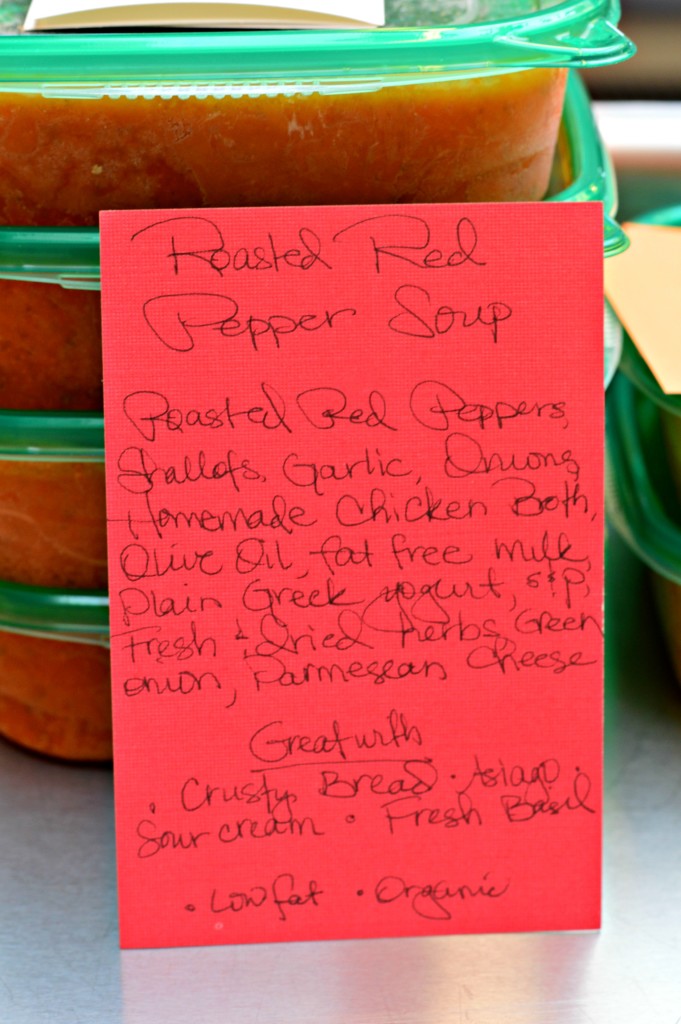 Roasted Red
Pepper Soup
Roasted Red Peppers,
Shallots, Garlic, Onions,
Homemade Chicken Both,
Olive Oil, fat free milk,
Plain Greek yogurt, s+p,
Fresh & Dried herbs, Green
onion, Parmesean Cheese
Great with
• Crusty Bread • Asiago •
Sour cream • Fresh Basil
• Low fat • Organic